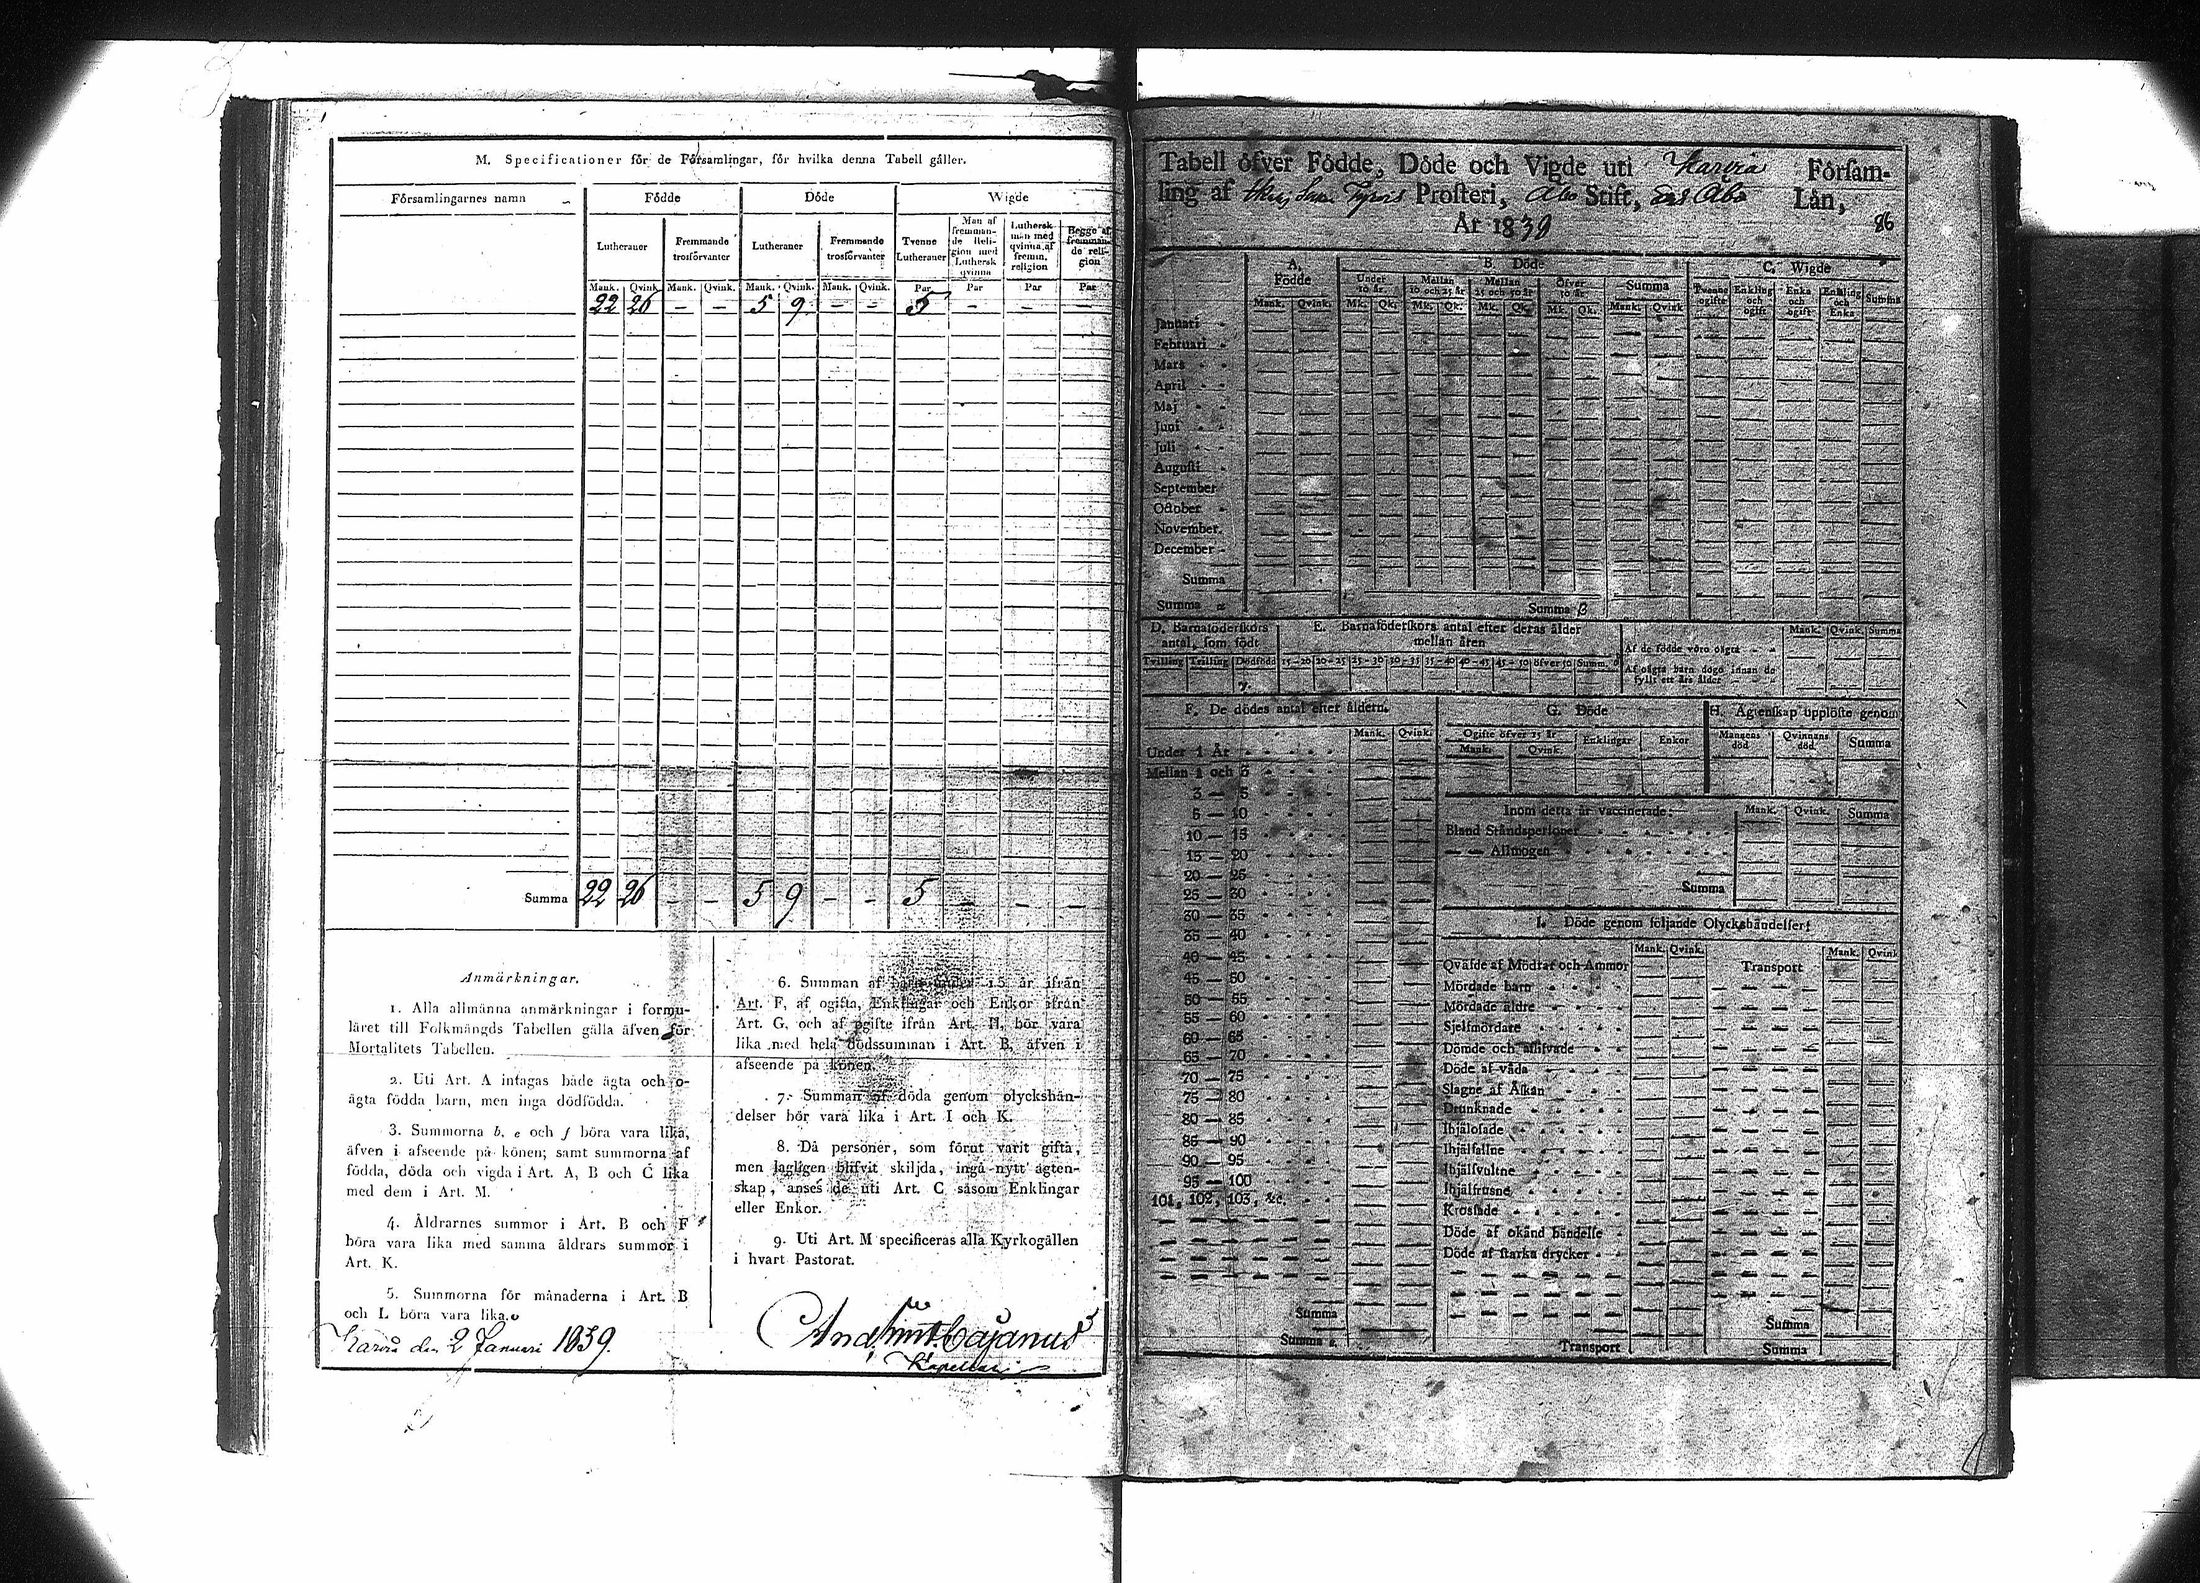 M. Specificationer för de Församlingar, för hvilka denna Tabell gäller.
Församlingarnes namn
Födde
Döde
Wigde
Lutheraner
Fremmande trosförvanter
Lutheraner
Fremmande trosförvanter
Tvenne Lutheraner
Man af fremmande Religion med Luthersk qvinna
Luthersk man med qvinna af fremm. religion
Begge af fremmande religion
Mank. Qvink. Mank. Qvink. Mank. Qvink. Mank. Qvink. Par Par Par Par
22 26 — — 5 9 — — 5 — —
Summa 22 26 — — 5 9 — — 5 — — —
Anmärkningar.
1. Alla allmänna anmärkningar i formu-
läret till Folkmängds Tabellen gälla äfven för
Mortalitets Tabellen.
2. Uti Art. A intagas både ägta och o-
ägta födda barn, men inga dödfödda.
3. Summorna b, e och f böra vara lika,
äfven i afseende på könen; samt summorna af
födda, döda och vigda i Art. A, B och C lika
med dem i Art. M.
4. Åldrarnes summor i Art. B och F
böra vara lika med samma åldrars summor i
Art. K.
5. Summorna för månaderna i Art. B
och L böra vara lika.
6. Summan af barn under 15 år ifrån
Art. F, af ogifta, Enklingar och Enkor ifrån
Art. G, och af gifte ifrån Art. H, bör vara
lika med hela dödssumman i Art. B, äfven i
afseende på könen.
7. Summan af döda genom olyckshän-
delser bör vara lika i Art. I och K.
8. Då personer, som förut varit gifta,
men lagligen blifvit skiljda, ingå nytt ägten-
skap, anses de uti Art. C såsom Enklingar
eller Enkor.
9. Uti Art. M specificeras alla Kyrkogällen
i hvart Pastorat.
den 2 Januari 1839.
Cajanus
Kapellan
Tabell öfver Födde, Döde och Vigde uti Församling af Prosteri, Åbo Stift, Åbo Län,
År 1839
86
A. Födde
B. Döde
C. Wigde
Under 10 år.
Mellan 10 och 25 år
Mellan 25 och 50 år
Öfver 50 år.
Summa
Tvenne ogifte
Enkling och ogift
Enka och ogift
Enkling och Enka
Summa
Mank. Qvink. Mk. Qk. Mk. Qk. Mk. Qk. Mk. Qk. Mank. Qvink
Januari
Februari
Mars
April
Maj
Juni
Juli
Augusti
September
October
November
December
Summa
Summa Summa
D. Barnaföderskors antal, som födt
E. Barnaföderskors antal efter deras ålder mellan åren
Mank. Qvink. Summa
Af de födde voro oägta
Af oägta barn dogo innan de fyllt ett års ålder
Tvilling Trilling Dödfödd 15-20 20-25 25-30 30-35 35-40 40-45 45-50 öfver 50 Summ.
F. De dödes antal efter åldern.
Mank. Qvink.
Under 1 År
Mellan 1 och 3
3 — 5
5 — 10
10 — 15
15 — 20
20 — 25
25 — 30
30 — 35
35 — 40
40 — 45
45 — 50
50 — 55
55 — 60
60 — 65
65 — 70
70 — 75
75 — 80
80 — 85
85 — 90
90 — 95
95 — 100
101, 102, 103, &c.
Summa
Summa
G. Döde
Ogifte öfver 15 år
Enklingar
Enkor
Mank. Qvink.
H. Ägtenskap upplöste genom
Mannens död
Qvinnans död
Summa
Inom detta år vaccinerade: Mank. Qvink. Summa
Bland Ståndspersoner
— — Allmogen
Summa
I. Döde genom följande Olyckshändelser:
Mank. Qvink. Mank. Qvink
Qväfde af Mödrar och Ammor Transport
Mördade barn
Mördade äldre
Sjelfmördare
Dömde och aflifvade
Döde af våda
Slagne af Åskan
Drunknade
Ihjälosade
Ihjälfallne
Ihjälsvultne
Ihjälfrusne
Krossade
Döde af okänd händelse
Döde af starka drycker
Summa
Transport Summa